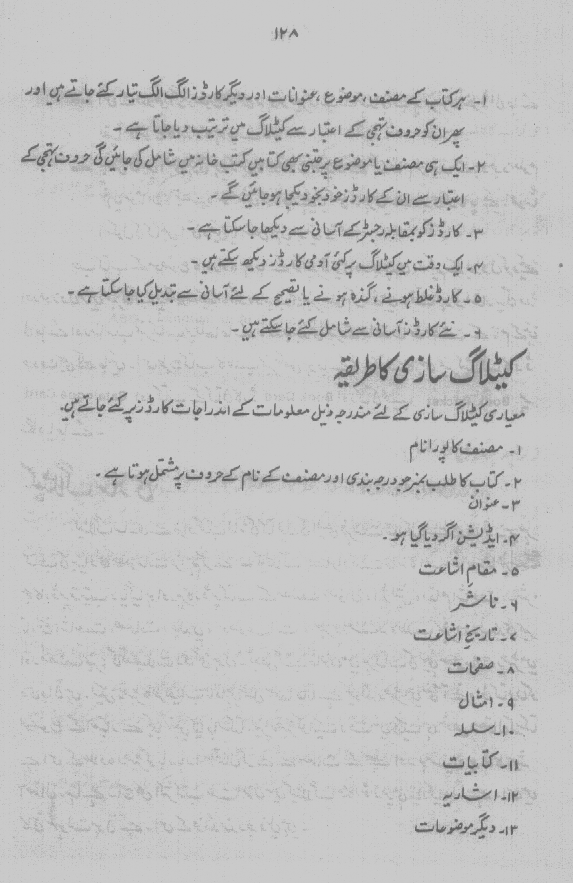 ۱۲۸
۱۔ ہر کتاب کے مصنف، موضوع، عنوانات اور دیگر کارڈز الگ الگ تیار کئے جاتے ہیں اور
پھر ان کو حروف تہجی کے اعتبار سے کیٹلاگ میں ترتیب دیا جاتا ہے۔
۲۔ ایک ہی مصنف یا موضوع پر جتنی بھی کتابیں کتب خانہ میں شامل کی جائیں گی حروف تہجی کے
اعتبار سے ان کے کارڈز خود بخود یکجا ہو جائیں گے۔
۳۔ کارڈز کو بمقابلہ رجسٹر کے آسانی سے دیکھا جا سکتا ہے۔
۴۔ ایک وقت میں کیٹلاگ پر کئی آدمی کارڈز دیکھ سکتے ہیں۔
۵۔ کارڈ غلط ہونے، گندہ ہونے یا تصحیح کے لئے آسانی سے تبدیل کیا جا سکتا ہے۔
۶۔ نئے کارڈز آسانی سے شامل کئے جا سکتے ہیں۔
کیٹلاگ سازی کا طریقہ
معیاری کیٹلاگ سازی کے لئے مندرجہ ذیل معلومات کے اندراجات کارڈز پر کئے جاتے ہیں۔
۱۔ مصنف کا پورا نام
۲۔ کتاب کا طلب نمبر جو درجہ بندی اور مصنف کے نام کے حروف پر مشتمل ہوتا ہے۔
۳۔ عنوان
۴۔ ایڈیشن اگر دیا گیا ہو۔
۵۔ مقامِ اشاعت
۶۔ ناشر
۷۔ تاریخِ اشاعت
۸۔ صفحات
۹۔ امثال
۱۰۔ سلسلہ
۱۱۔ کتابیات
۱۲۔ اشاریہ
۱۳۔ دیگر موضوعات